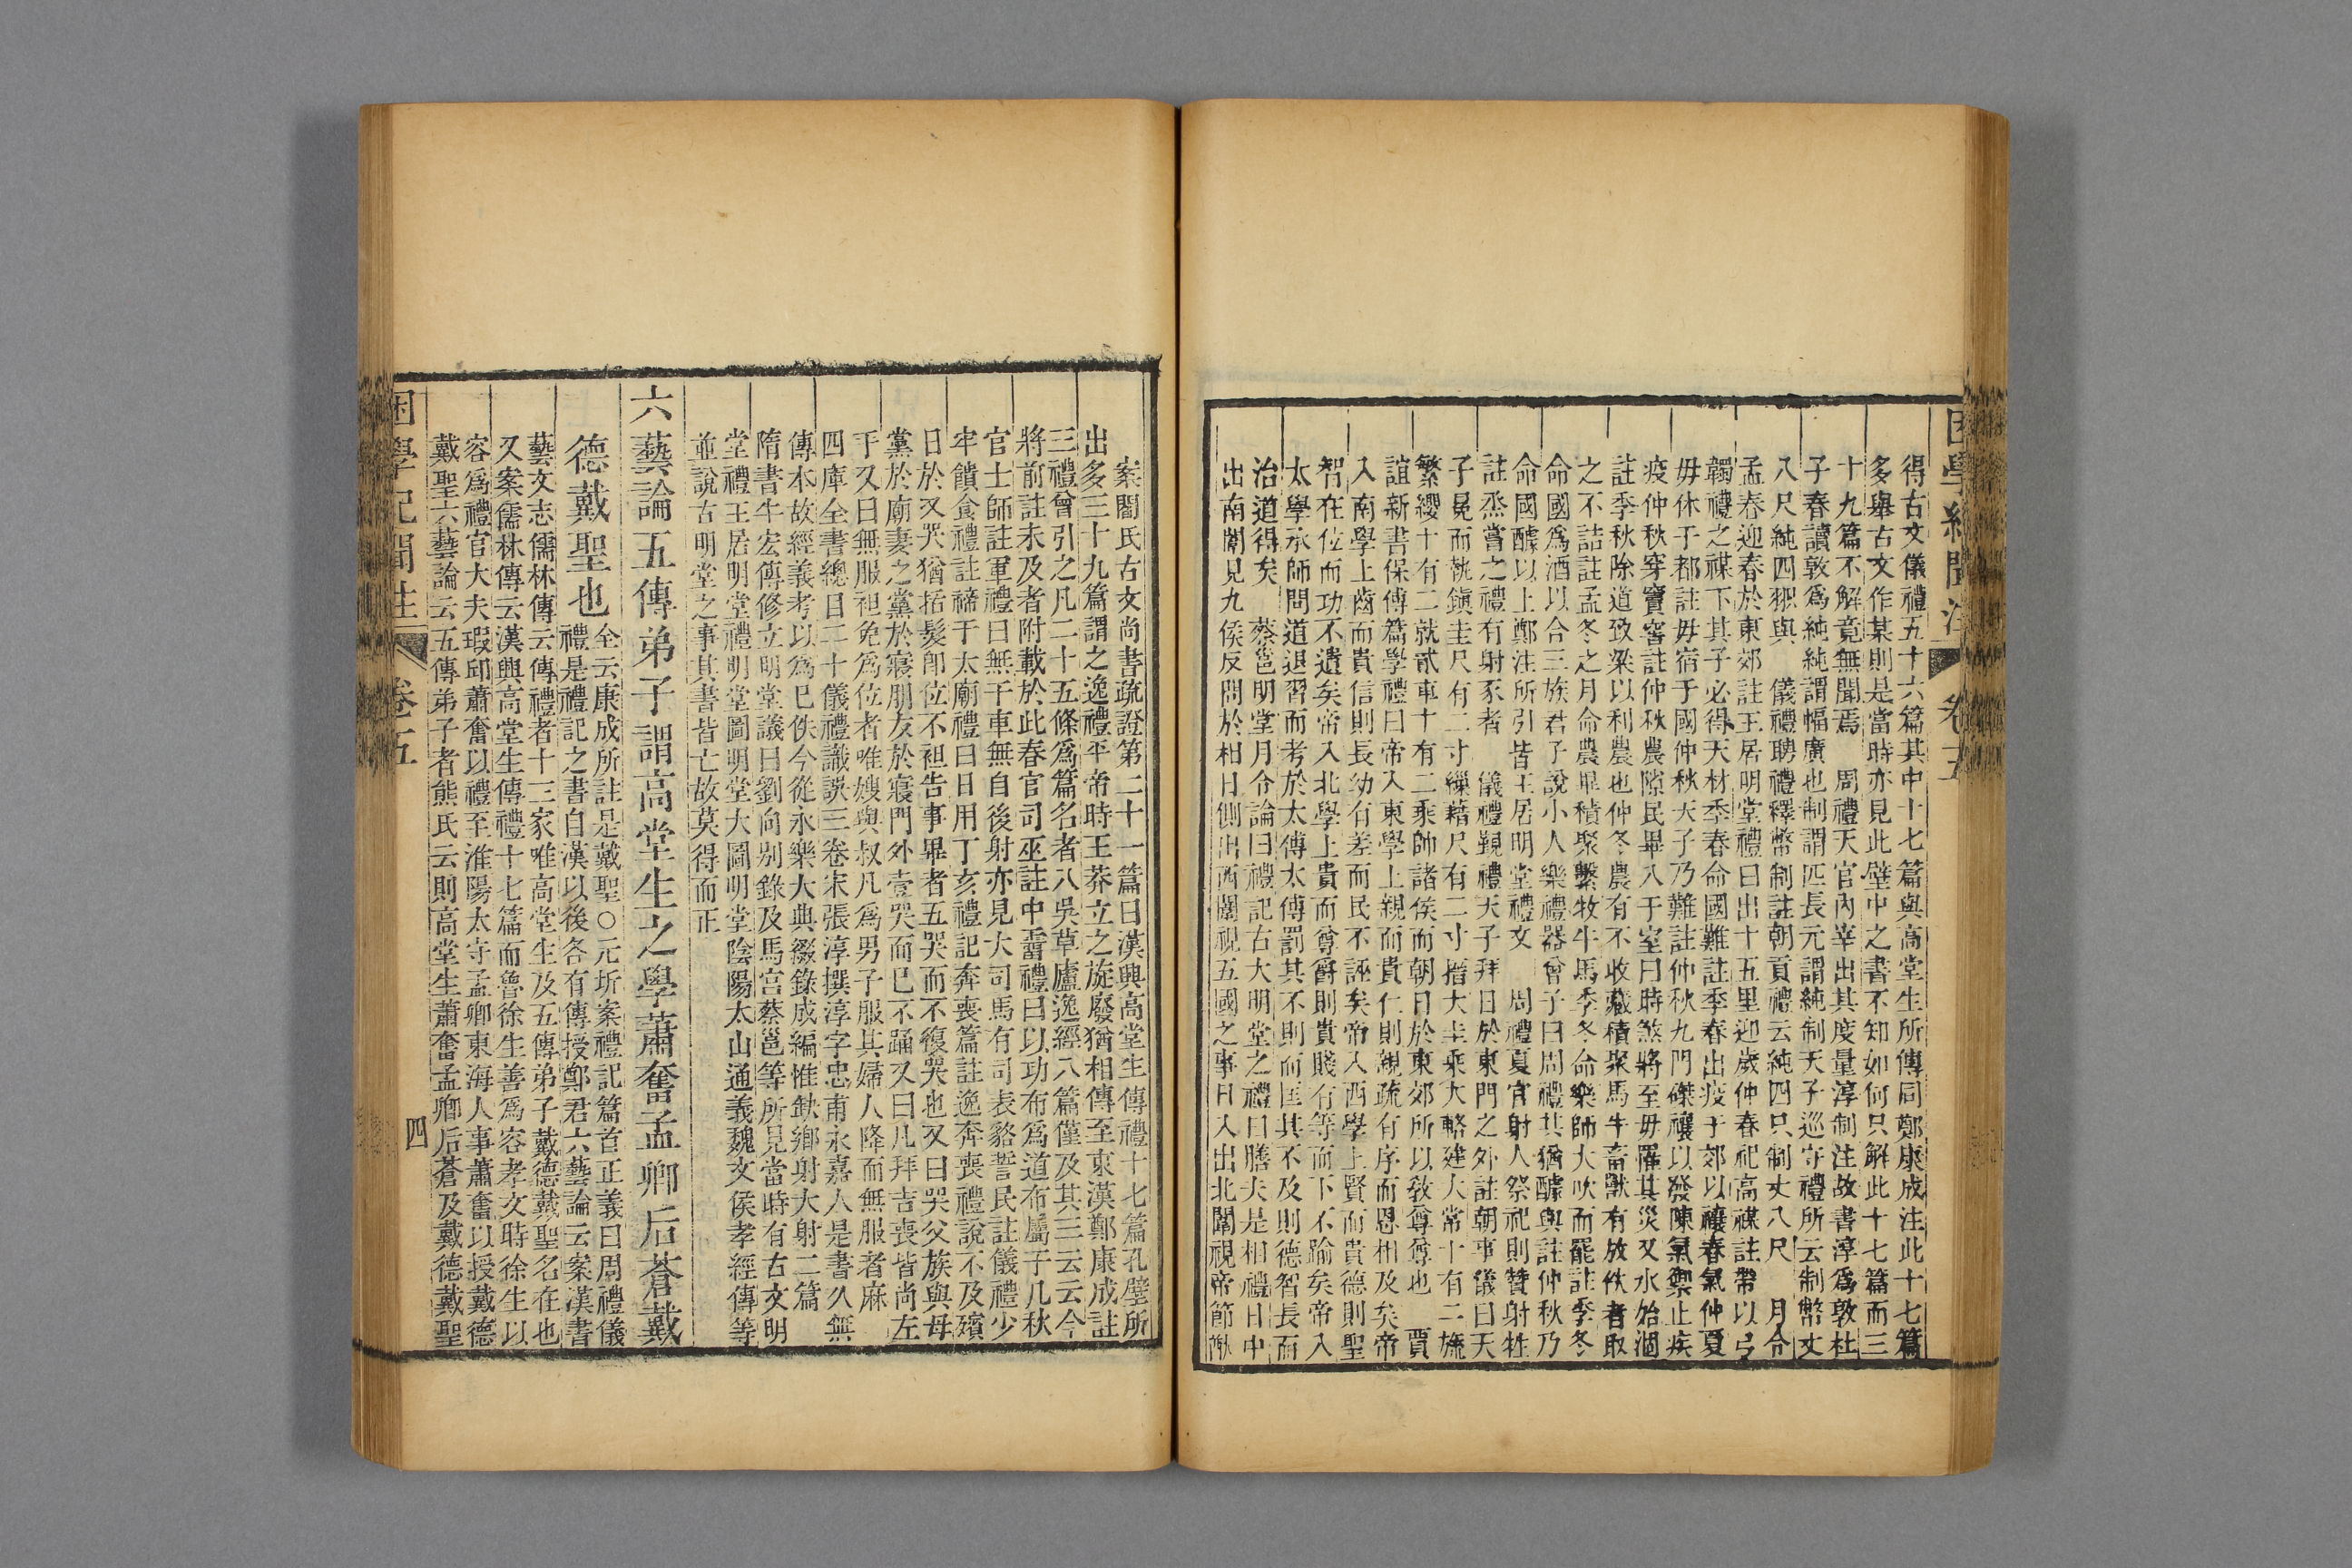 困學紀聞注 卷五
得古文儀禮五十六篇其中十七篇與高堂生所傳同鄭康成注此十七篇
多舉古文作某則是當時亦見此壁中之書不知如何只解此十七篇而三
十九篇不解竟無聞焉 周禮天官內宰出其度量淳制注故書淳爲敦杜
子春讀敦爲純純謂幅廣也制謂匹長元謂純制天子巡守禮所云制幣丈
八尺純四𦐇與 儀禮聘禮釋幣制註朝貢禮云純四只制丈八尺 月令
孟春迎春於東郊註王居明堂禮曰出十五里迎歲仲春祀高禖註帶以弓
韣禮之禖下其子必得天材季春命國難註季春出疫于郊以禳春氣仲夏
毋休于都註毋宿于國仲秋天子乃難註仲秋九門磔禳以發陳氣禦止疾
疫仲秋穿竇窖註仲秋農隙民畢入于室曰時煞將至毋罹其災又水始涸
註季秋除道致梁以利農也仲冬農有不收藏積聚馬牛畜獸有放佚者取
之不詰註孟冬之月命農畢積聚繫牧牛馬季冬命樂師大吹而罷註季冬
命國爲酒以合三族君子說小人樂禮器曾子曰周禮其猶醵與註仲秋乃
命國醵以上鄭注所引皆王居明堂禮文 周禮夏官射人祭祀則贊射牲
註烝嘗之禮有射豕者 儀禮覲禮天子拜日於東門之外註朝事儀曰天
子冕而執鎭圭尺有二寸繅藉尺有二寸搢大圭乘大輅建大常十有二旒
繁纓十有二就貳車十有二乘帥諸侯而朝日於東郊所以敎尊尊也 賈
誼新書保傅篇學禮曰帝入東學上親而貴仁則親疏有序而恩相及矣帝
入南學上齒而貴信則長幼有差而民不誣矣帝入西學上賢而貴德則聖
智在位而功不遺矣帝入北學上貴而尊爵則貴賤有等而下不踰矣帝入
太學承師問道退習而考於太傅太傅罰其不則而匡其不及則德智長而
治道得矣 蔡邕明堂月令論曰禮記古大明堂之禮曰膳夫是相禮日中
出南闈見九侯反問於相日側出西闈視五國之事日入出北闈視帝節猷
案閻氏古文尚書疏證第二十一篇曰漢興高堂生傳禮十七篇孔壁所
出多三十九篇謂之逸禮平帝時王莽立之旋廢猶相傳至東漢鄭康成註
三禮曾引之凡二十五條爲篇名者八吳草廬逸經八篇僅及其三云云今
將前註未及者附載於此春官司巫註中霤禮曰以功布爲道布屬于几秋
官士師註軍禮曰無干車無自後射亦見大司馬有司表貉誓民註儀禮少
牢饋食禮註禘于太廟禮曰日用丁亥禮記奔喪篇註逸奔喪禮說不及殯
日於又哭猶括髮即位不袒告事畢者五哭而不復哭也又曰哭父族與母
黨於廟妻之黨於寢朋友於寢門外壹哭而已不踊又曰凡拜吉喪皆尚左
手又曰無服袒免爲位者唯嫂與叔凡爲男子服其婦人降而無服者麻
四庫全書總目二十儀禮識誤三卷宋張淳撰淳字忠甫永嘉人是書久無
傳本故經義考以爲已佚今從永樂大典綴錄成編惟缺鄉射大射二篇
隋書牛宏傳修立明堂議曰劉向別錄及馬宫蔡邕等所見當時有古文明
堂禮王居明堂禮明堂圖明堂大圖明堂陰陽太山通義魏文侯孝經傳等
並說古明堂之事其書皆亡故莫得而正
六藝論五傳弟子謂高堂生之學蕭奮孟卿后蒼戴
德戴聖也
全云康成所註是戴聖○元圻案禮記篇首正義曰周禮儀
禮是禮記之書自漢以後各有傳授鄭君六藝論云案漢書
藝文志儒林傳云傳禮者十三家唯高堂生及五傳弟子戴德戴聖名在也
又案儒林傳云漢興高堂生傳禮十七篇而魯徐生善爲容孝文時徐生以
容爲禮官大夫瑕邱蕭奮以禮至淮陽太守孟卿東海人事蕭奮以授戴德
戴聖六藝論云五傳弟子者熊氏云則高堂生蕭奮孟卿后蒼及戴德戴聖
困學紀聞注 卷五 四